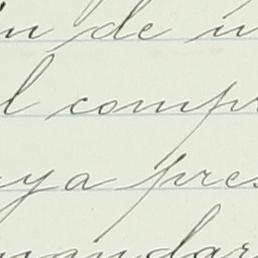 n de
l comp
ya pres
mandar